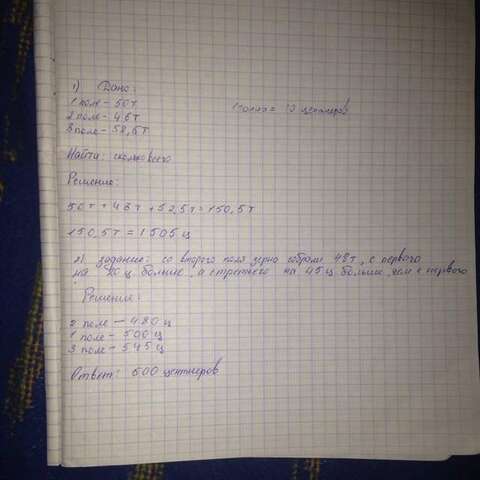 1) Дано:
1 поле - 50 т 1 тонна = 10 центнеров
2 поле - 48 т
3 поле - 58,5 т
Найти: сколько всего
Решение:
50 т + 48 т + 52,5 т = 150,5 т
150,5 т = 1505 ц
2) задание: со второго поля зерно собрали 48 т, с первого
на 20 ц больше, а с третьего на 45 ц больше, чем с первого
Решение:
2 поле - 480 ц
1 поле - 500 ц
3 поле - 545 ц
Ответ: 500 центнеров